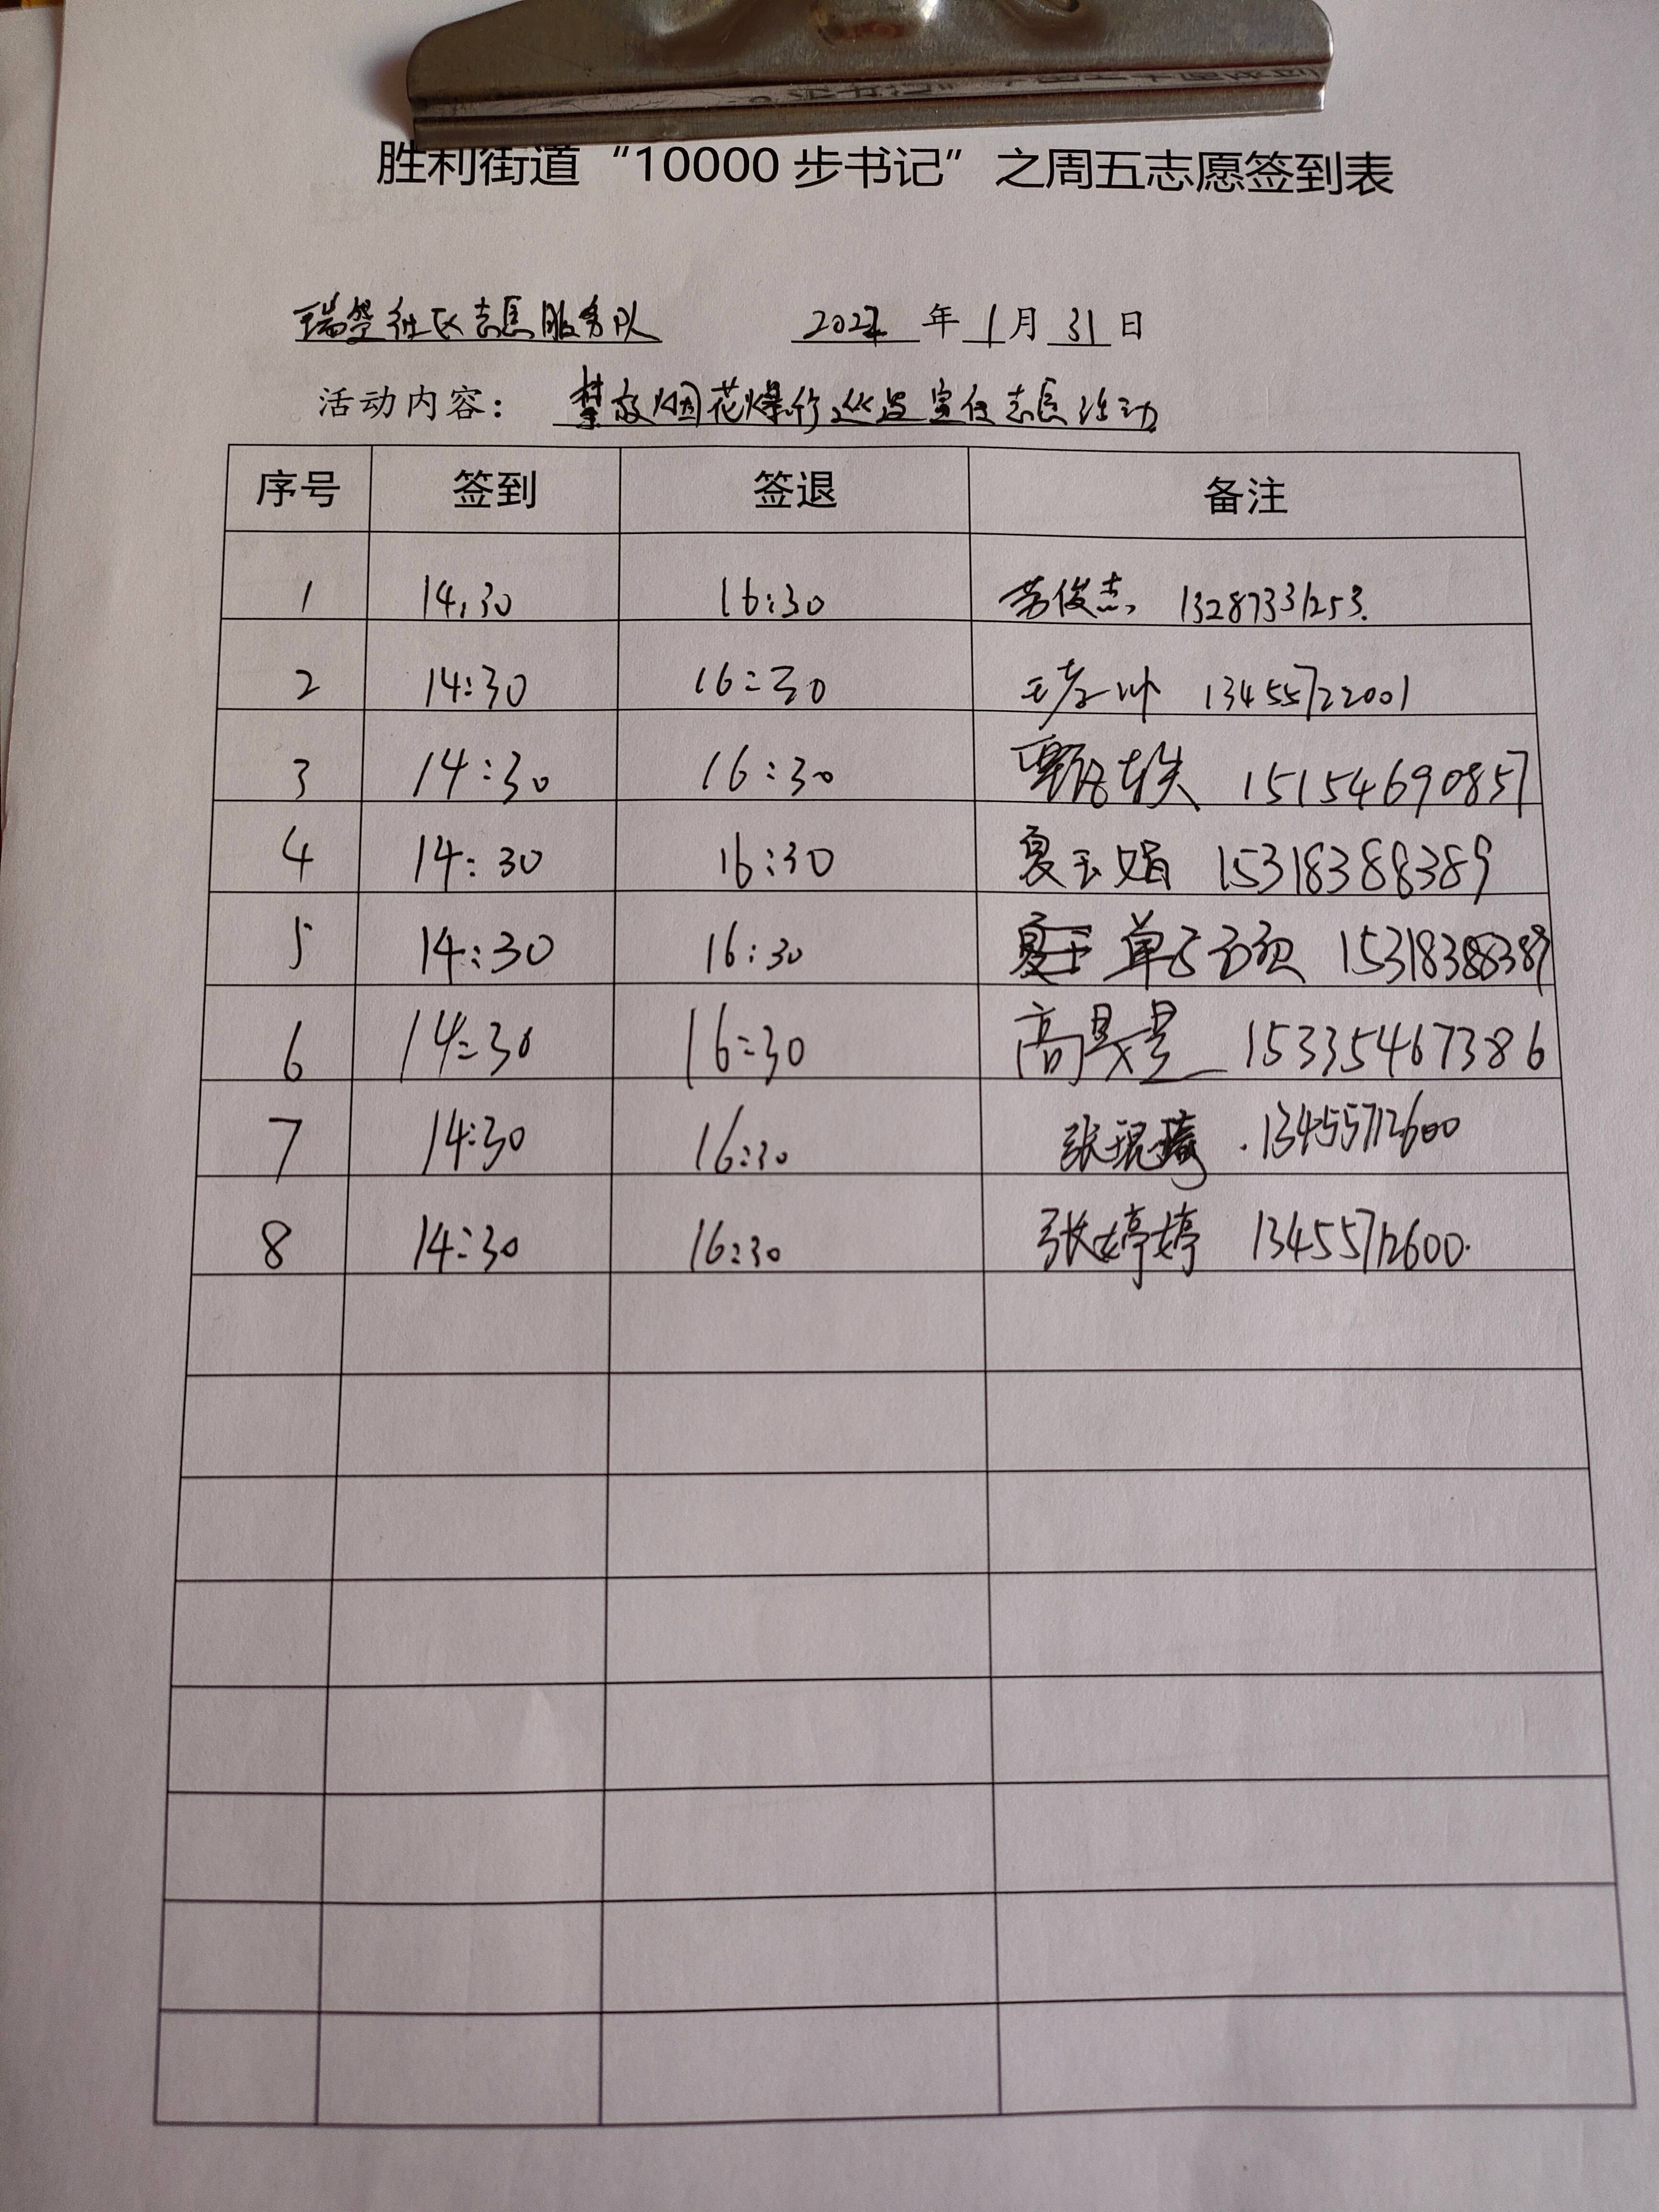 胜利街道“10000步书记”之周五志愿签到表
瑞 社区志愿服务队 2022年1月31日
活动内容：禁放烟花爆竹巡逻宣传志愿活动
序号 签到 签退 备注
1 14:30 16:30 俊杰 13287331253.
2 14:30 16:30 13455722001
3 14:30 16:30 15154690857
4 14:30 16:30 夏玉娟 15318388389
5 14:30 16:30 单子 15318388389
6 14:30 16:30 高 15335467386
7 14:30 16:30 张琨 13455712600
8 14:30 16:30 张婷婷 13455712600.